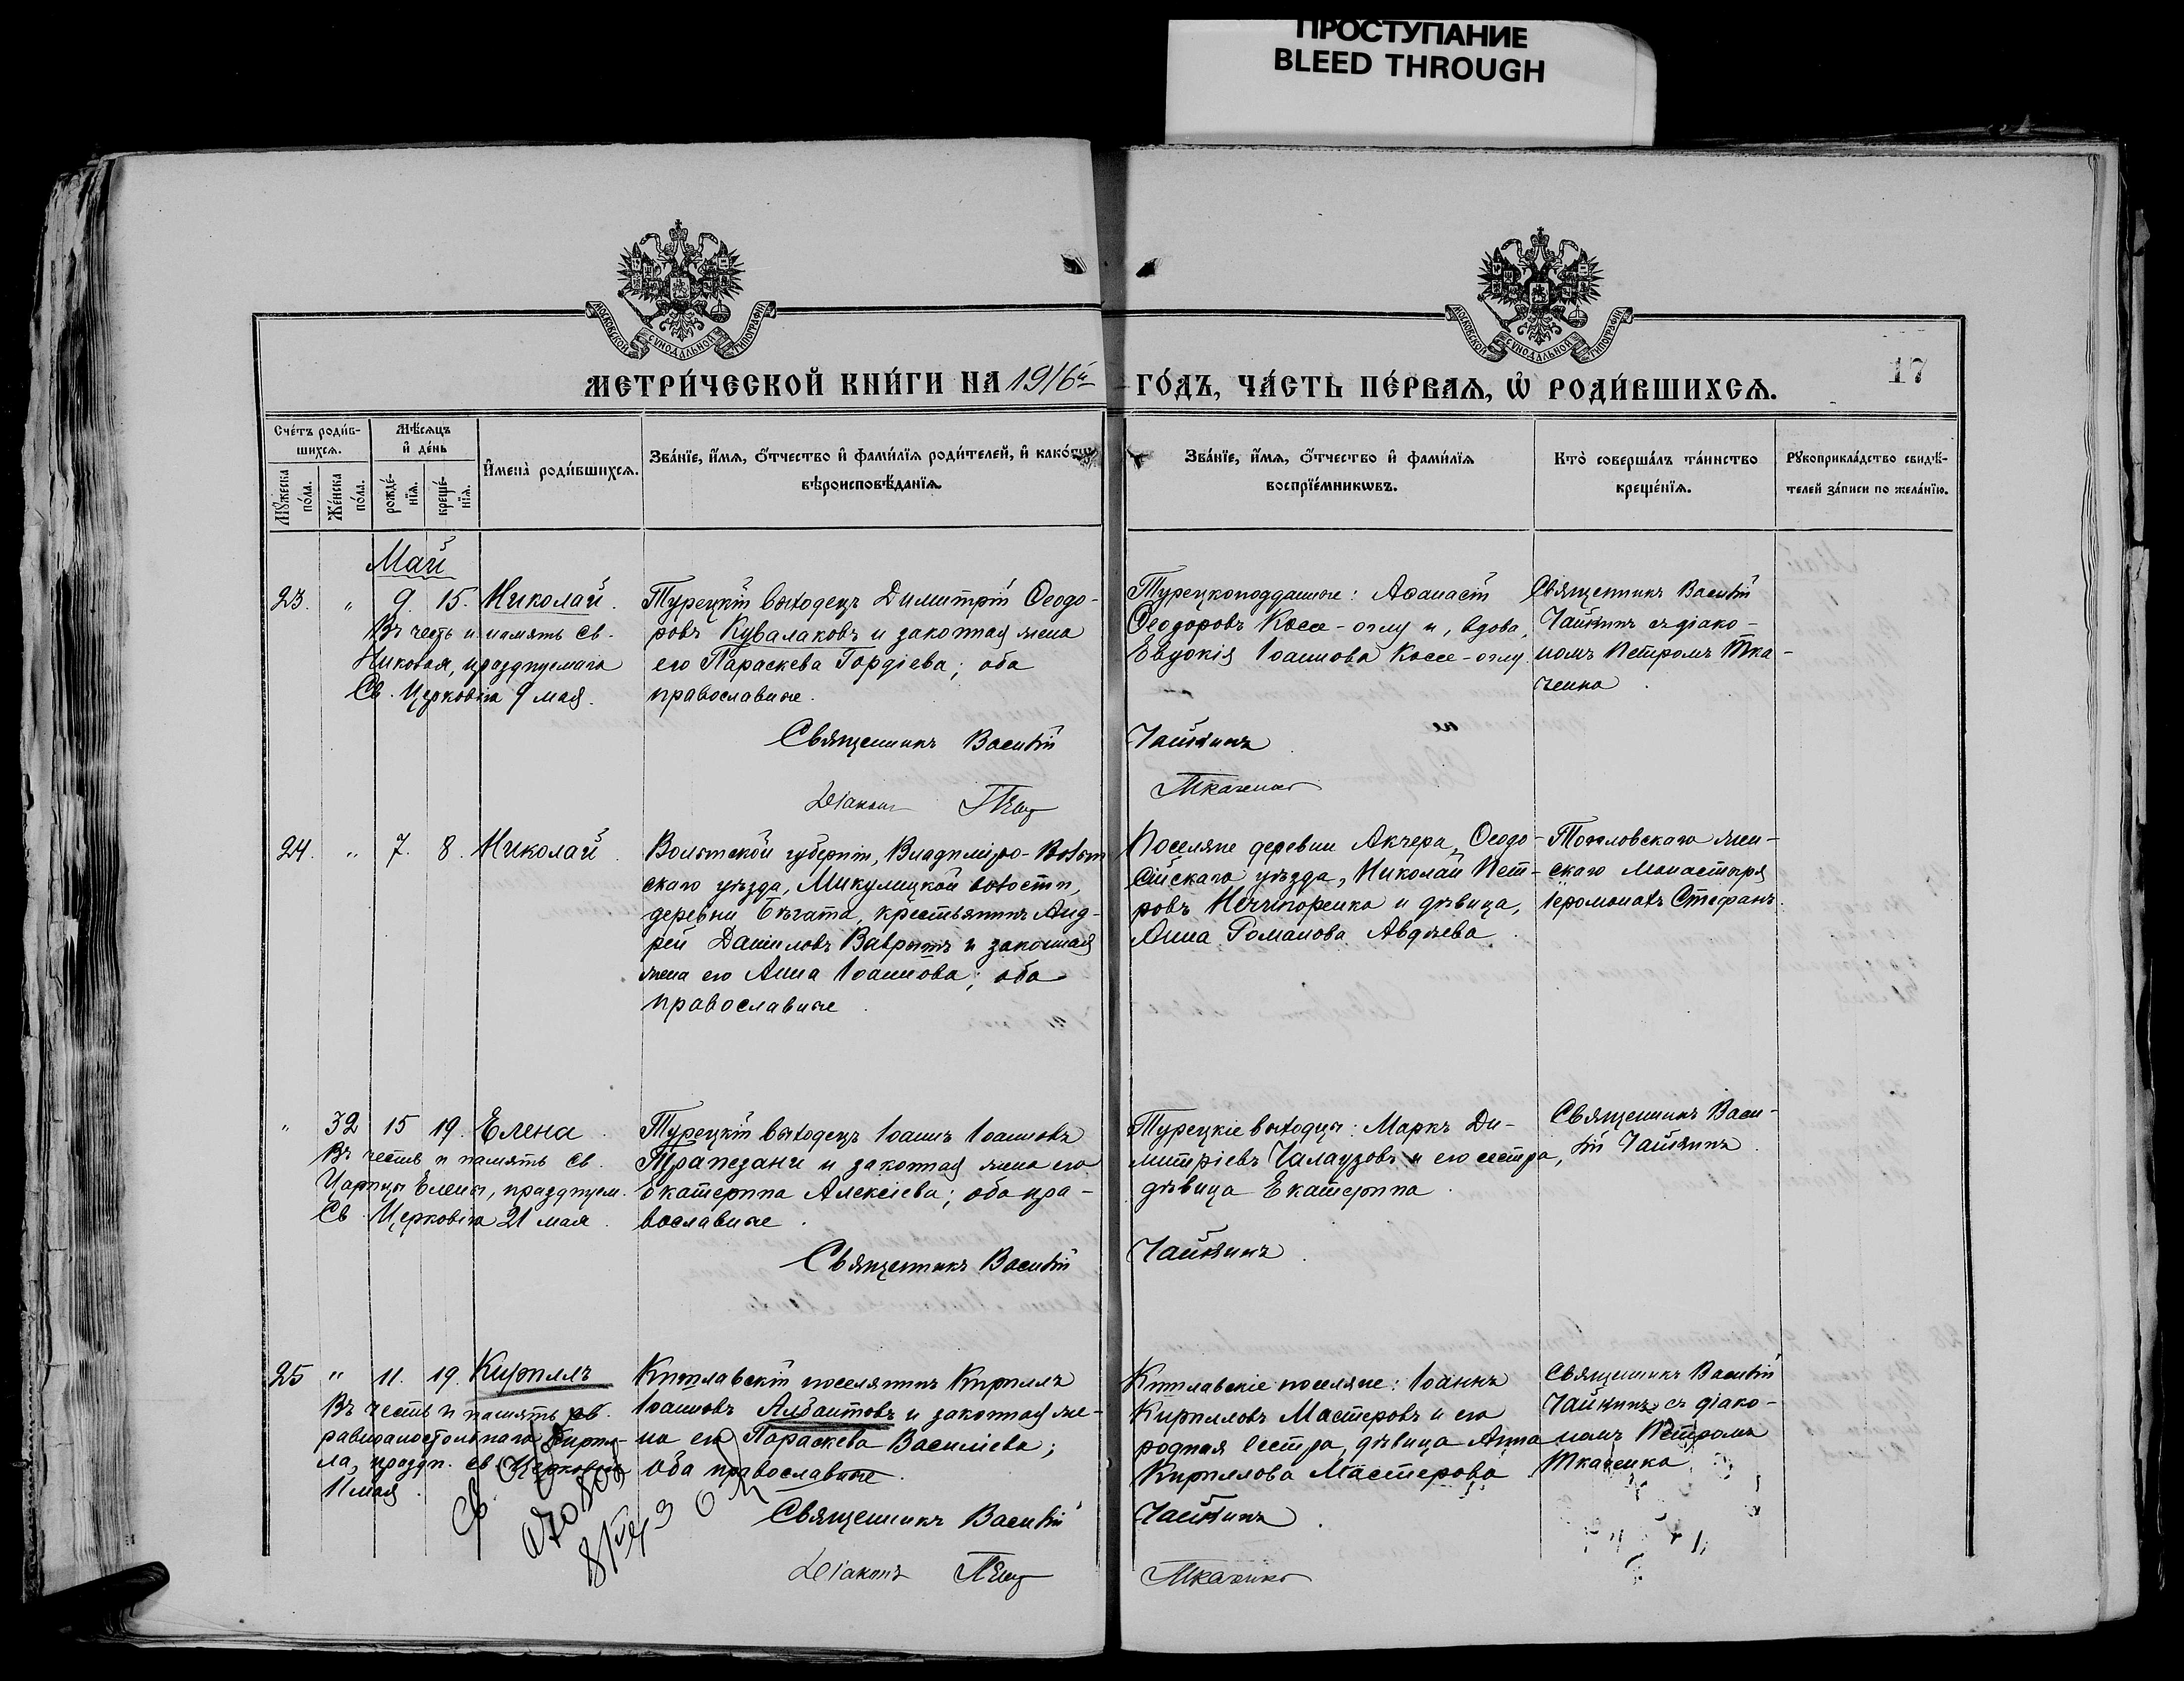 ПРОСТУПАНИЕ
BLEED THROUGH
МОСКОВСКОЙ СѴНОДАЛЬНОЙ ТИПОГРАФІИ
МОСКОВСКОЙ СѴНОДАЛЬНОЙ ТИПОГРАФІИ
МЕТРИ́ЧЕСКОЙ КНИ́ГИ НА 1916й ГО́ДЪ, ЧА́СТЬ ПЕ́РВАЯ, Ѡ РОДИ́ВШИХСЯ.
17
Счетъ родив-
шихся.
Мѣсяцъ
и день
Мужеска
пола.
Женска
пола.
рожде-
нія.
креще-
нія.
Имена родившихся.
Званіе, имя, отчество и фамилія родителей, и какогѡ
вѣроисповѣданія.
Званіе, имя, отчество и фамилія
воспріемникѡвъ.
Кто совершалъ таинство
крещенія.
Рукоприкладство свидѣ-
телей записи по желанію.
Май
23. " 9. 15. Николай.
Въ честь и память св.
Николая, празднуемаго
Св. Церковію 9 мая.
Турецкій выходецъ Димитрій Ѳеодо-
ровъ Кувалаковъ и законная жена
его Параскева Гордіева; оба
православные.
Турецкоподданные: Аѳанасій
Ѳеодоровъ Кассе-оглу и, вдова,
Евдокія Іоаннова Кассе-оглу.
Священникъ Василій
Чайкинъ съ діако-
номъ Петромъ Тка-
ченко.
Священникъ Василій Чайкинъ.
Діаконъ Петръ Ткаченко
24. " 7. 8. Николай.
Волынской губерніи, Владиміро-Волын
скаго уѣзда, Микулицкой волости,
деревни Бѣгата, крестьянинъ Анд-
рей Даниловъ Ваврытъ и законная
жена его Анна Іоаннова; оба
православные.
Поселяне деревни Акчера, Ѳеодо-
сійскаго уѣзда, Николай Пет-
ровъ Нечипоренко и дѣвица,
Анна Романова Авдѣева.
Топловскаго жен-
скаго монастыря
Іеромонахъ Стефанъ.
" 32 15 19. Елена.
Въ честь и память св.
Царицы Елены, празднуем.
Св. Церковію 21 мая.
Турецкій выходецъ Іоаннъ Іоанновъ
Трапезанчи и законная жена его
Екатерина Алексіева; оба пра-
вославные.
Турецкіе выходцы: Маркъ Ди-
митріевъ Чалаузовъ и его сестра,
дѣвица Екатерина.
Священникъ Васи-
лій Чайкинъ.
Священникъ Василій Чайкинъ.
25 " 11. 19. Кириллъ
Въ честь и память св.
равноапостольнаго Кирил-
ла, праздн. св. Церковію
11 мая.
Кишлавскій поселянинъ Кириллъ
Іоанновъ Албантовъ и законная же-
на его Параскева Василіева;
оба православные.
Кишлавскіе поселяне: Іоаннъ
Кирилловъ Мастеровъ и его
родная сестра, дѣвица Анна
Кириллова Мастерова
Священникъ Василій
Чайкинъ съ діако-
номъ Петромъ
Ткаченко
Священникъ Василій Чайкинъ.
Діаконъ Петръ Ткаченко